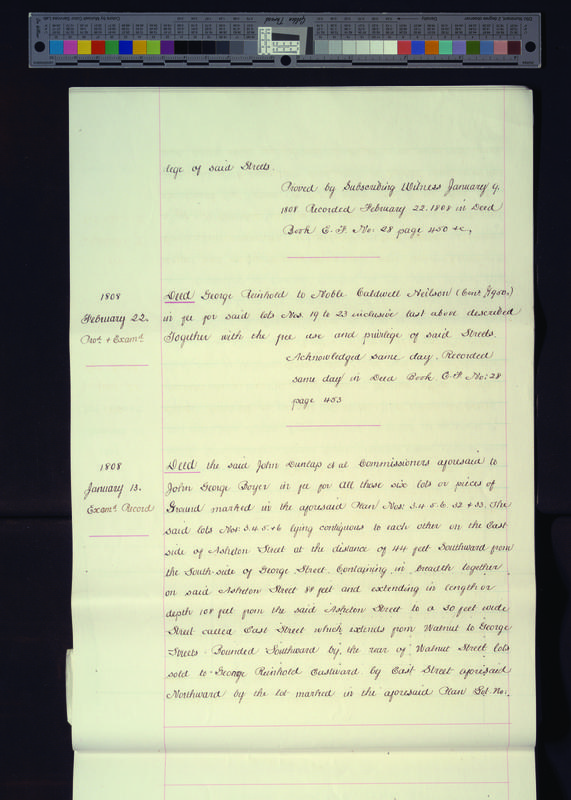 lege of said Streets.
Proved by Subscribing Witness January 9.
1808 Recorded February 22. 1808 in Deed
Book E. F. No: 28 page 450 &c,
1808
February 22.
Deed George Reinhold to Noble Caldwell Neilson (Cons.
in fee for said lots Nos. 19 to 23 inclusive last above described
Together with the free use and privilege of said Streets.
Acknowledged same day. Recorded
same day in Deed Book E. F. No: 28
page 453
1808
January 13.
Examd. Record
Deed the said John Dunlap et al Commissioners aforesaid to
John George Boyer in fee for All those six lots or pieces of
Ground marked in the aforesaid Plan Nos: 3. 4. 5. 6. 32 & 33. The
said lots Nos: 3. 4. 5. & 6 lying contiguous to each other on the East
side of Ashton Street at the distance of 44 feet Southward from
the South side of George Street. Containing in breadth together
on said Ashton Street 88 feet and extending in length or
depth 108 feet from the said Ashton Street to a 30 feet wide
Street called East Street which extends from Walnut to George
Streets. Bounded Southward by the rear of Walnut Street lots
sold to George Reinhold Eastward by East Street aforesaid
Northward by the lot marked in the aforesaid Plan Lot No: